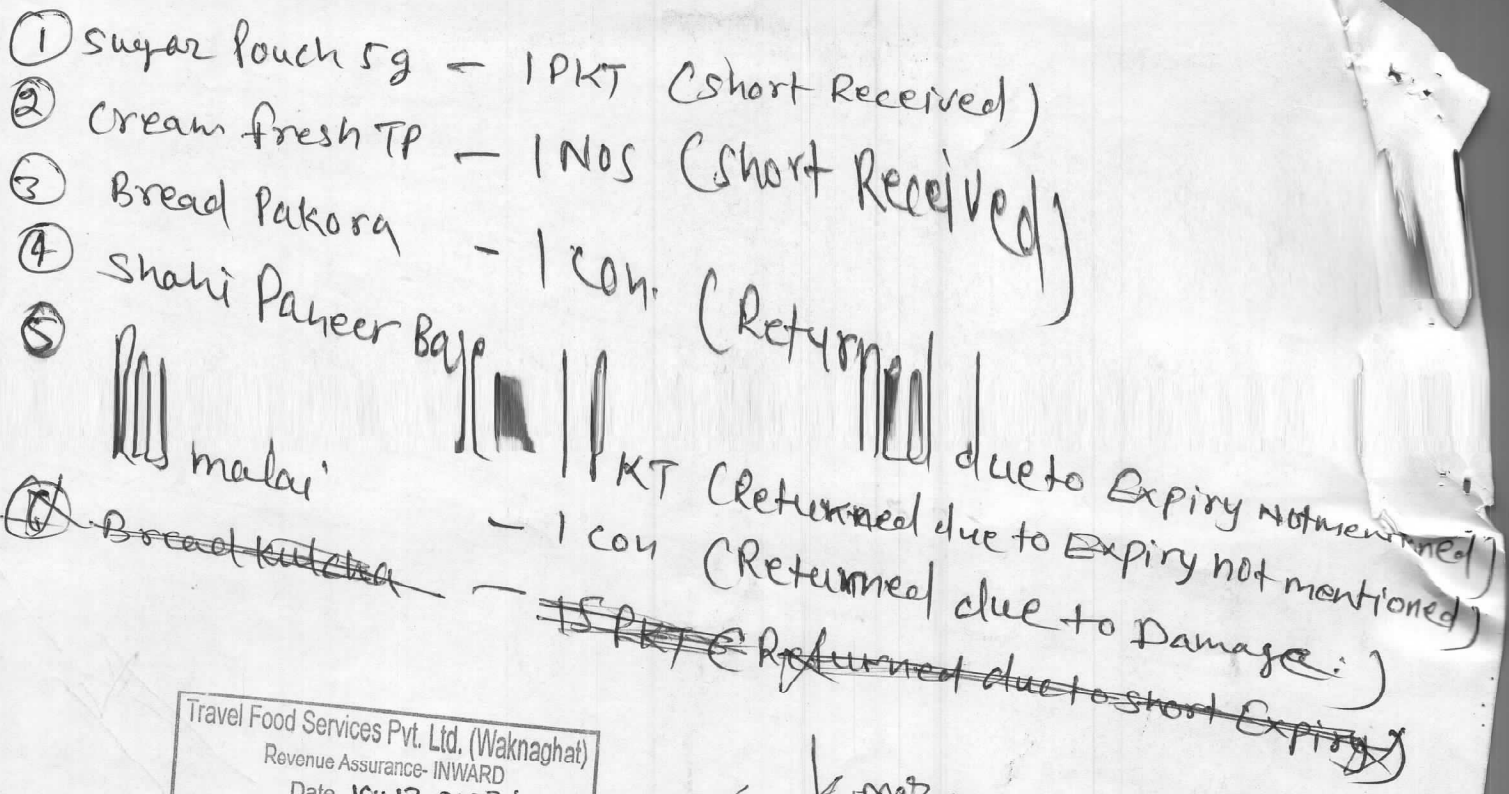 ① Sugar Pouch 5g - 1 PKT (Short Received)
② Cream fresh TP - 1 NOS (Short Received)
③ Bread Pakora - 1 Con. (Returned due to Expiry Not mentioned)
④ Shahi Paneer Base - 1 PKT (Returned due to Expiry not mentioned)
⑤ Ras malai - 1 Con (Returned due to Damage.)
⑥ Bread Kulcha - 15 PKT (Returned due to short Expiry)
Travel Food Services Pvt. Ltd. (Waknaghat)
Revenue Assurance- INWARD
Date